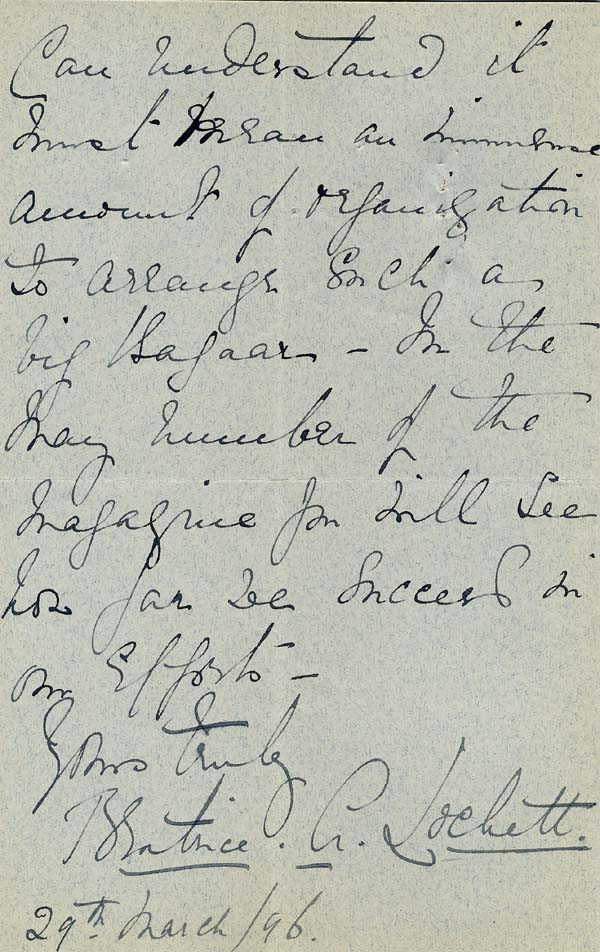 Can understand it
must mean an immense
amount of organization
to arrange such a
big Bazaar – In the
May number of the
magazine you will see
how far we succeed in
our efforts –
Yours truly
Beatrice. C. Lockett.
29th March/96.